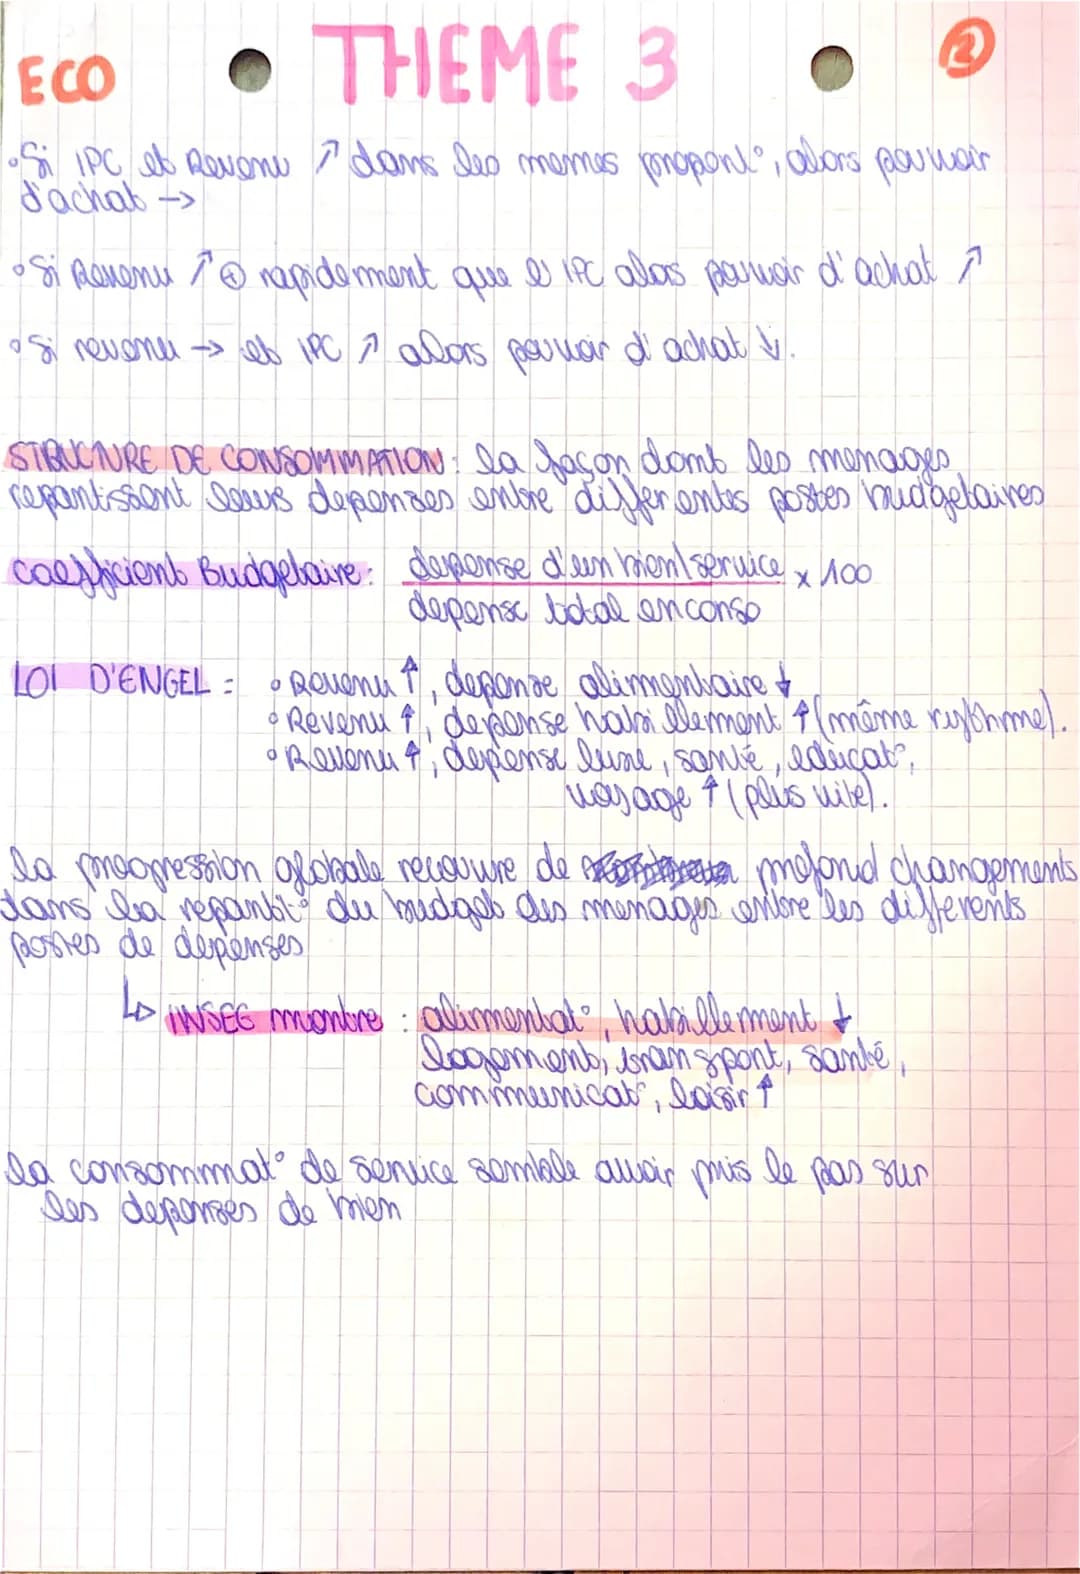 ECO THEME 3 2
• Si IPC et Revenu ↗ dans les memes proport°, alors pouvoir
d'achat →
• Si Revenu ↗ ⊕ rapidement que l'IPC alors pouvoir d'achat ↗
• Si revenu → et IPC ↗ alors pouvoir d'achat ↓.
STRUCTURE DE CONSOMMATION : la façon dont les menages
repartissent leurs depenses entre différentes postes budgetaires
coefficient Budgetaire : depense d'un bien/service x 100
depense total en conso
LOI D'ENGEL : • Revenu ↑, depense alimentaire ↓
• Revenu ↑, depense habillement ↑ (même rythme).
• Revenu ↑, depense luxe, santé, educat°,
voyage ↑ (plus vite).
la progression globale recouvre de profond changements
dans la repartit° du budget des menages entre les différents
postes de depenses
↳ INSEE montre : alimentat°, habillement ↓
logement, transport, santé,
communicat°, loisir ↑
la consommat° de service semble avoir pris le pas sur
les depenses de bien